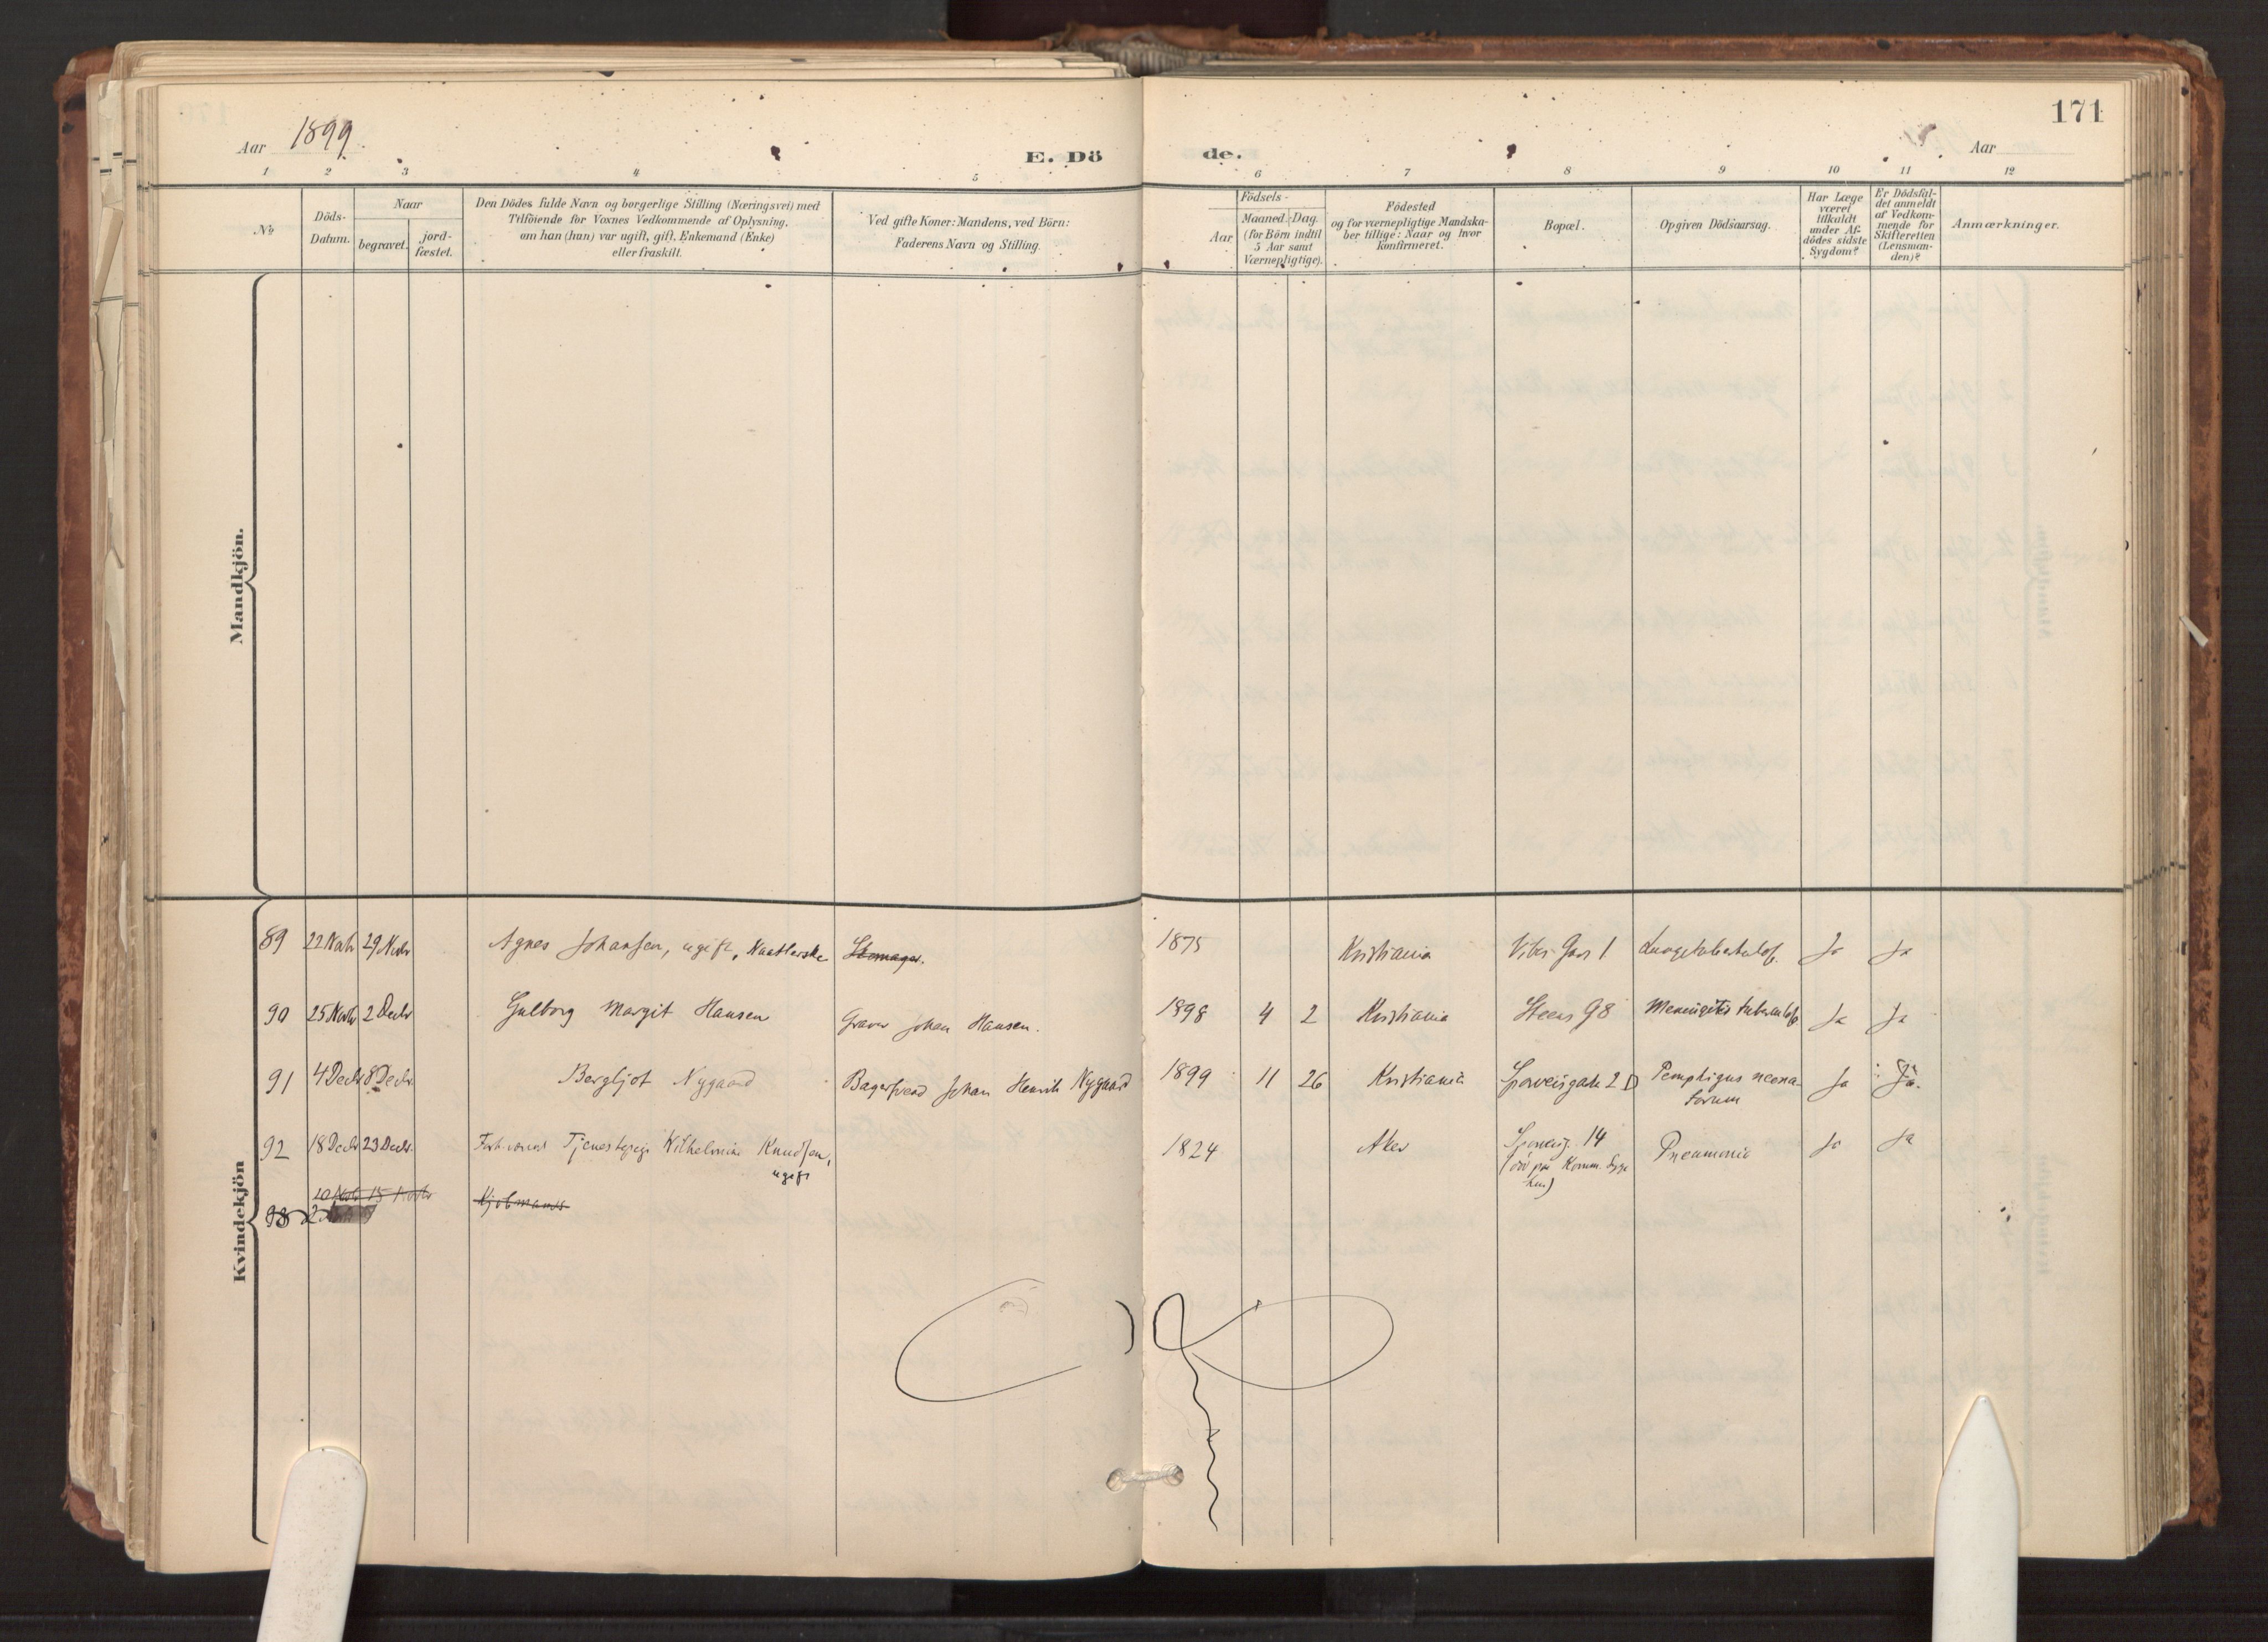 171
Aar 1899.
E. Dö de.
Aar
1 2 3 4 5 6 7 8 9 10 11 12
No
Döds-
Datum.
Naar
begravet.
jord-
fæstet.
Den Dödes fulde Navn og borgerlige Stilling (Næringsvei) med
Tilföiende for Voxnes Vedkommende af Oplysning,
om han (hun) var ugift, gift, Enkemand (Enke)
eller fraskilt.
Ved gifte Koner: Mandens, ved Börn:
Faderens Navn og Stilling.
Födsels-
Aar
Maaned. Dag.
(for Börn indtil
5 Aar samt
Værnepligtige).
Födested
og for værnepligtige Mandska-
ber tillige: Naar og hvor
konfirmeret.
Bopæl.
Opgiven Dödsaarsag.
Har Læge
været
tilkaldt
under Af-
dödes sidste
Sygdom?
Er Dödsfal-
det anmeldt
af Vedkom-
mende for
Skifteretten
(Lensman-
den)?
Anmærkninger.
Mandkjön.
Kvindekjön
89 22 Novbr 29 Novbr Agnes Johansen, ugift, 1875 Kristiania Vibes Gad 1 Ja Ja
90 25 Novbr 2 Decbr Gulborg Margit Hansen Graver Johan Hansen. 1898 4 2 Kristiania Steens G 8 Meningitis tuberculos. Ja Ja
91 4 Decbr 8 Decbr. Bergljot Nygaard Bagersvend Johan Henrik Nygaard 1899 11 26 Kristiania Sporveisgade 2 D Pemphigus neona-
torum Ja Ja.
92 18 Decbr 23 Decbr. Forhenværende Tjenestepige Wilhelmine Knudsen,
ugift 1824 Aker Sporveisg. 14
(död paa Komm. Syge
hus) Pneumonie Ja Ja
10 Novbr 15 Novbr
93